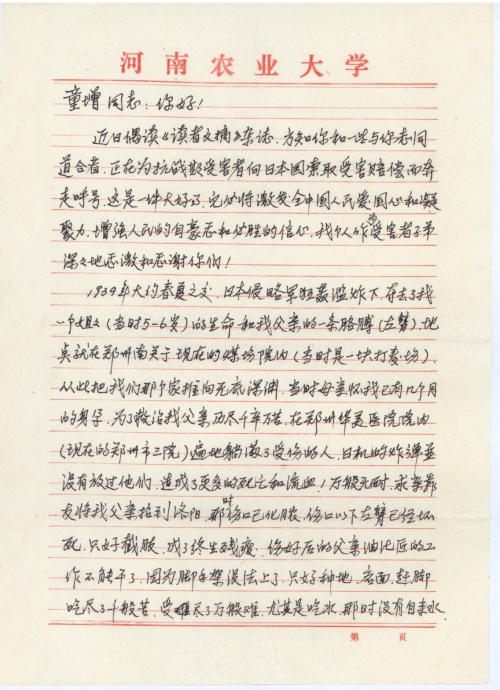 河南农业大学
童增同志:你好!
近日偶读《读者文摘》杂志,方知你和一些与你志同
道合者,正在为抗战期受害者向日本国索取受害赔偿而奔
走呼号,这是一件大好事,它必将激发全中国人民爱国心和凝
聚力,增强人民的自豪感和必胜的信心,我个人作为受害者子弟
深深地感激和感谢你们!
1939年大约春夏之交,日本侵略军狂轰滥炸下,夺去了我
一个姐姐(当时5-6岁)的生命和我父亲的一条胳膊(左臂),地
点就在郑州南关于现在的煤场院内(当时是一块打麦场),
从此把我们那个家推向无底深渊,当时母亲怀我已有几个月
的身孕,为了救治我父亲历尽千辛万苦,在郑州华美医院院内
(现在的郑州市三院)遍地躺满了受伤的人,日机的炸弹并
没有放过他们,造成了更多的死亡和流血!万般无耐,求亲靠
友将我父亲抬到洛阳,那时伤口已化脓,伤口以下左臂已经坏
死,只好截肢,成了终生残废,伤好后的父亲油漆匠的工
作不能干了,因为脚手架没法上了,只好种地,卖面,赶脚
吃尽了千般苦,受尽了万般难,尤其是吃水,那时没有自来水,
第 页